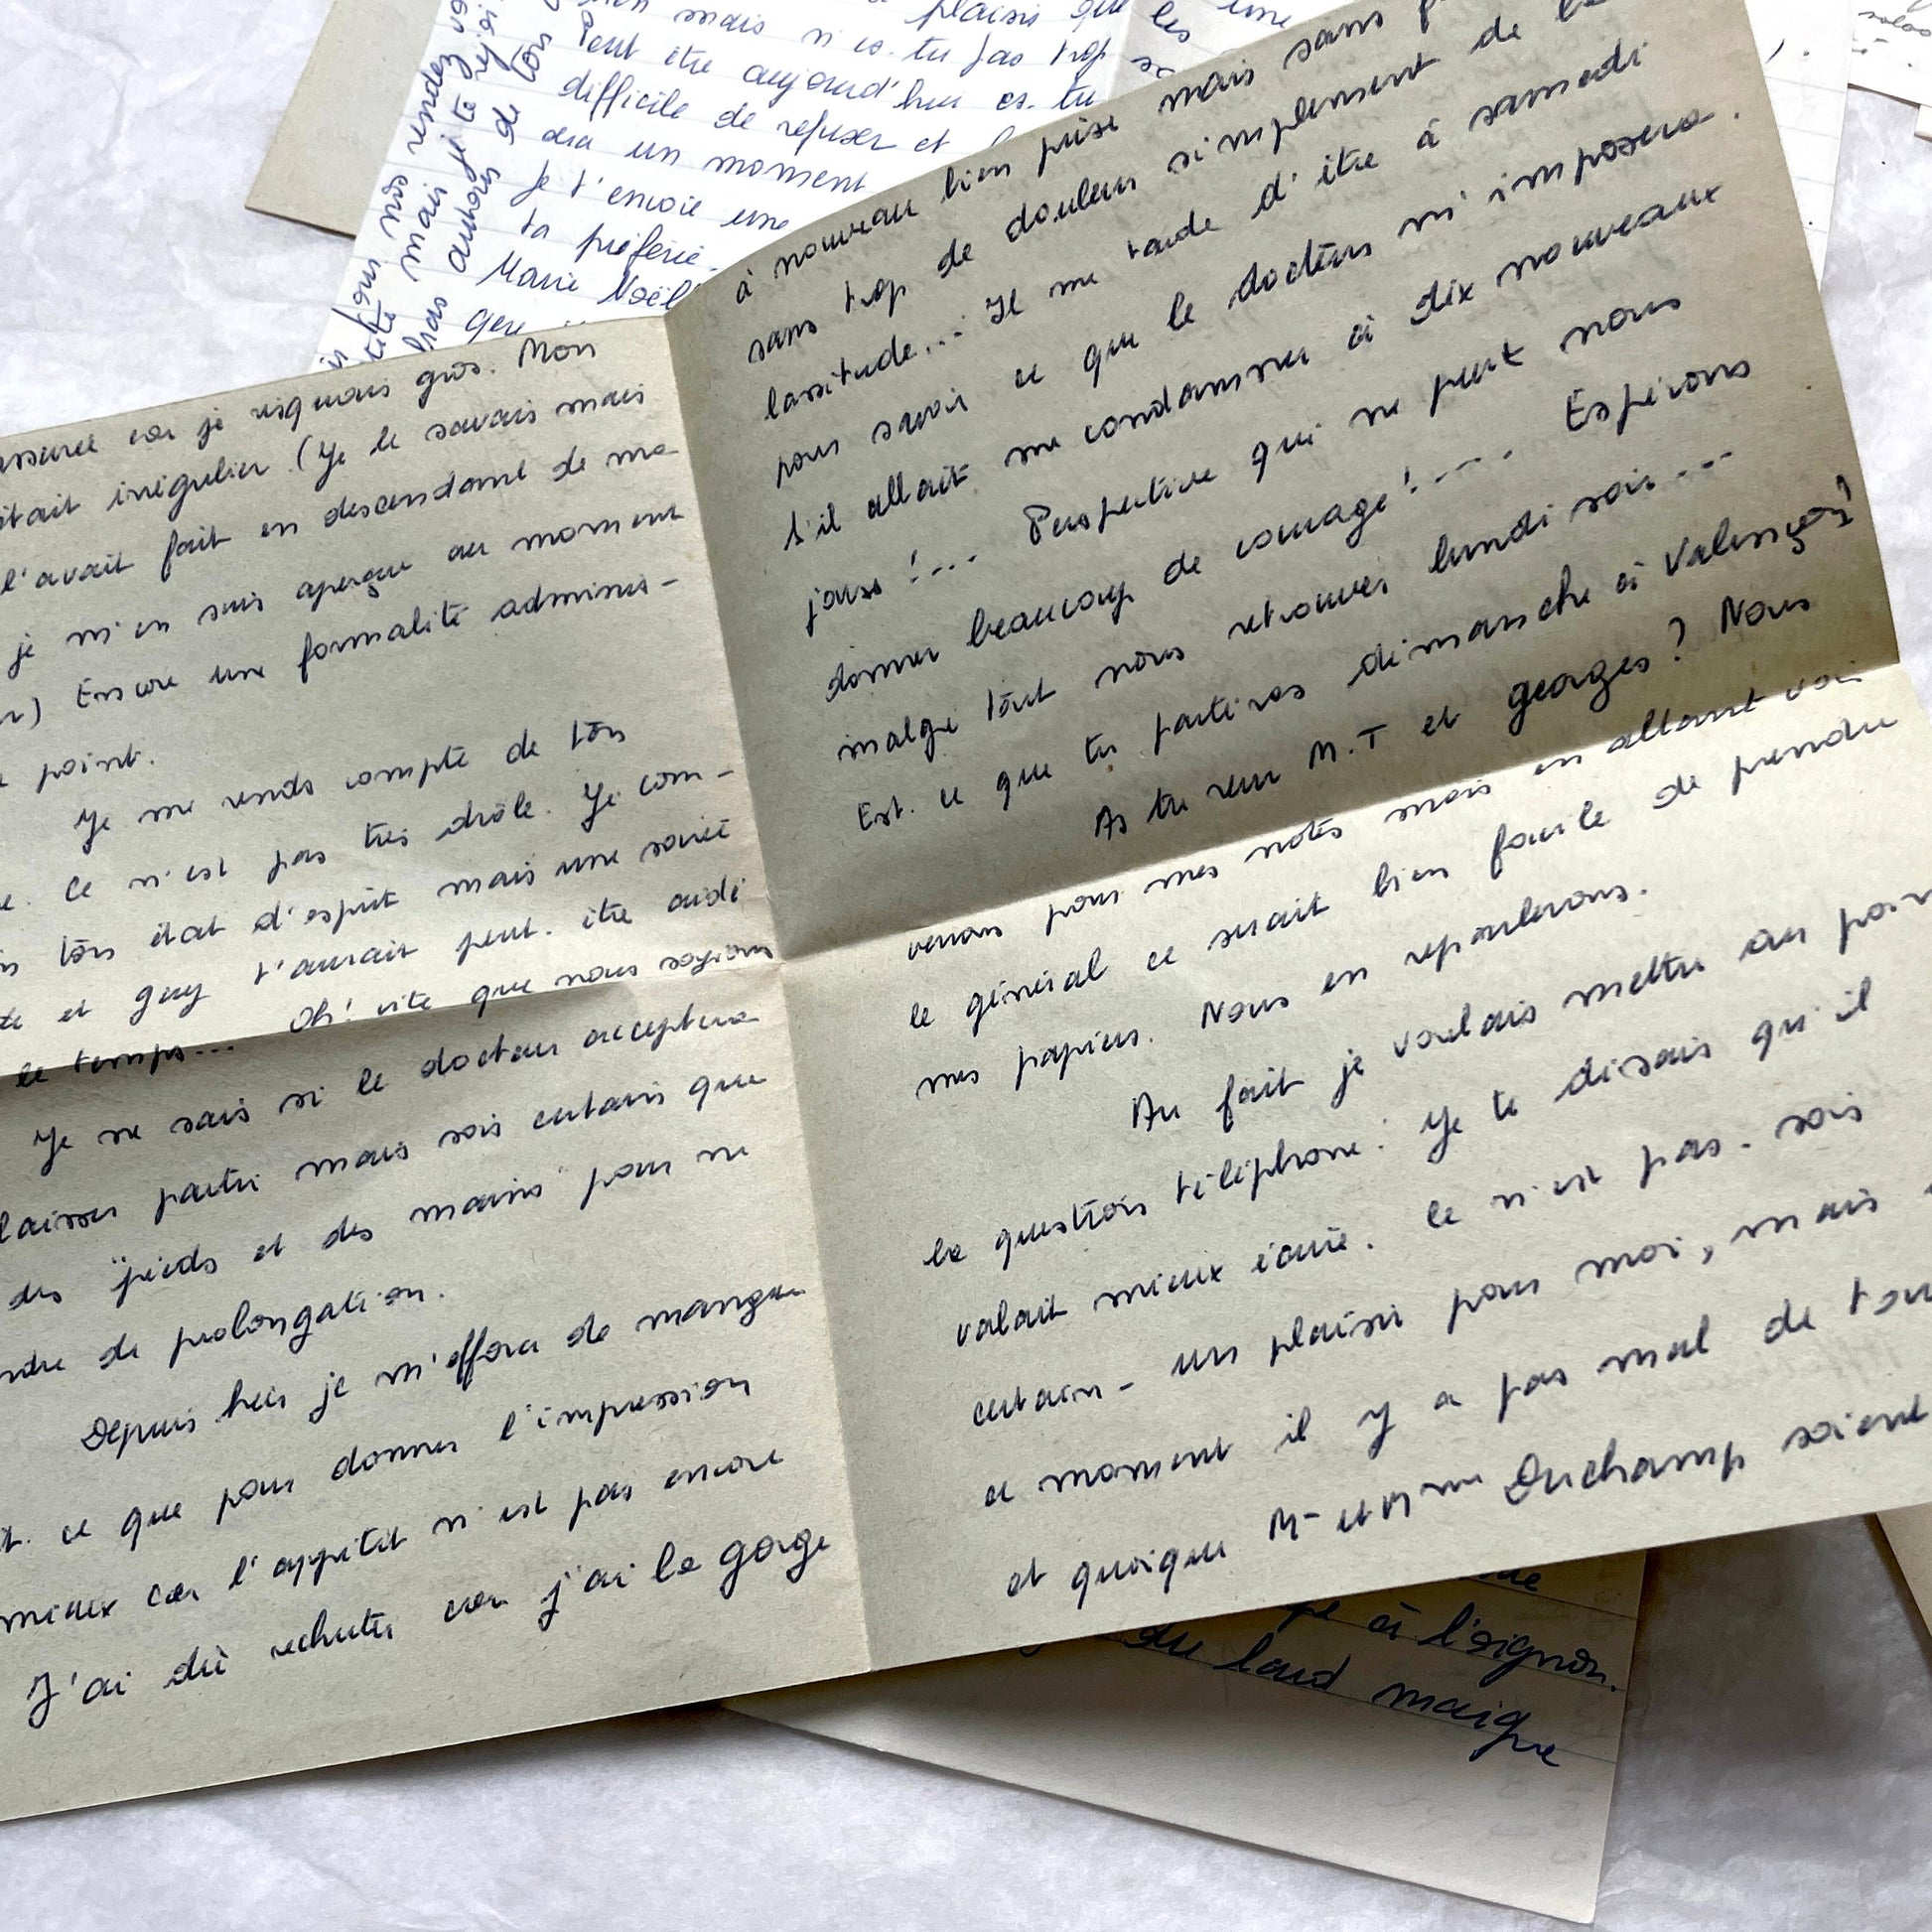 mais n'es-tu pas trop
Peut être aujourd'hui es-tu
difficile de refuser et
un moment
Je t'envoie une
ta préférée.
Marie Noël
car je risquais gros. Mon
était irrégulier (Je le savais mais
l'avait fait en descendant de ma
je m'en suis aperçue au moment
Encore une formalité adminis-
point.
Je me rends compte de ton
Ce n'est pas très drôle. Je com-
ton état d'esprit mais une soirée
et Guy t'aurait peut-être aidé
le temps... Oh! vite que nous soyions
Je ne sais si le docteur acceptera
laisser partir mais sois certain que
des "pieds et des mains" pour ne
de prolongation.
Depuis hier je m'efforce de manger
ce que pour donner l'impression
mieux car l'appétit n'est pas encore
J'ai dû rechuter car j'ai la gorge
à nouveau bien prise mais sans
sans trop de douleur simplement de la
lassitude... Il me tarde d'être à samedi
pour savoir ce que le docteur m'imposera.
S'il allait me condamner à dix nouveaux
jours!... Perspective qui ne peut nous
donner beaucoup de courage!.... Espérons
malgré tout nous retrouver lundi soir...
Est-ce que tu partiras dimanche à Valençay?
As tu revu M.T et Georges? Nous
verrons pour mes notes mais en allant voir
le général ce serait bien facile de prendre
mes papiers. Nous en reparlerons.
Au fait je voulais mettre au point
la question téléphone: Je te disais qu'il
valait mieux écrire. Ce n'est pas - sois
certain - un plaisir pour moi, mais
ce moment il y a pas mal de
et quoique Mr et Mme Duchamp soient
à l'oignon.
du lard maigre